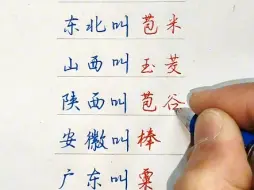 东北叫苞米
山西叫玉茭
陕西叫苞谷
安徽叫棒
广东叫粟